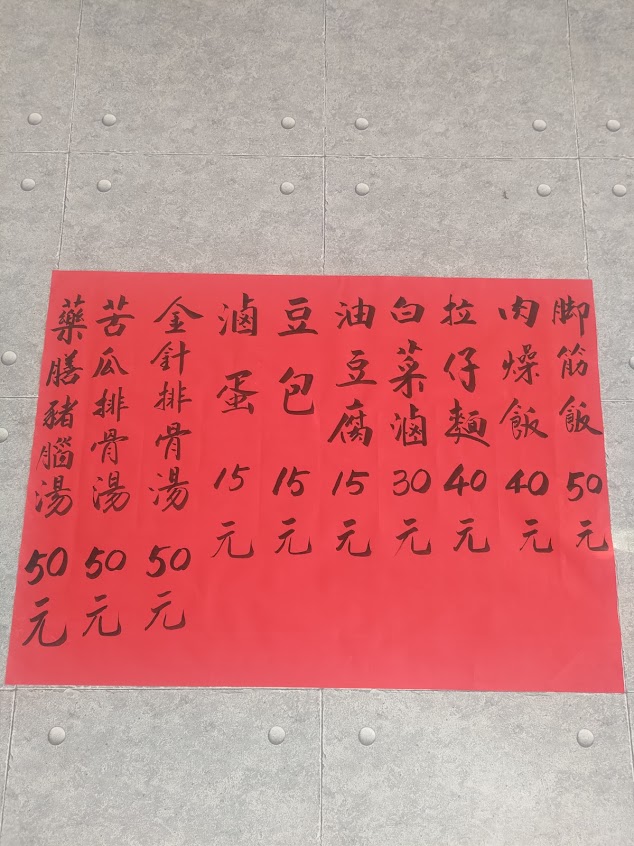 脚筋飯50元
肉燥飯40元
拉仔麵40元
白菜滷30元
油豆腐15元
豆包15元
滷蛋15元
金針排骨湯50元
苦瓜排骨湯50元
藥膳豬腦湯50元